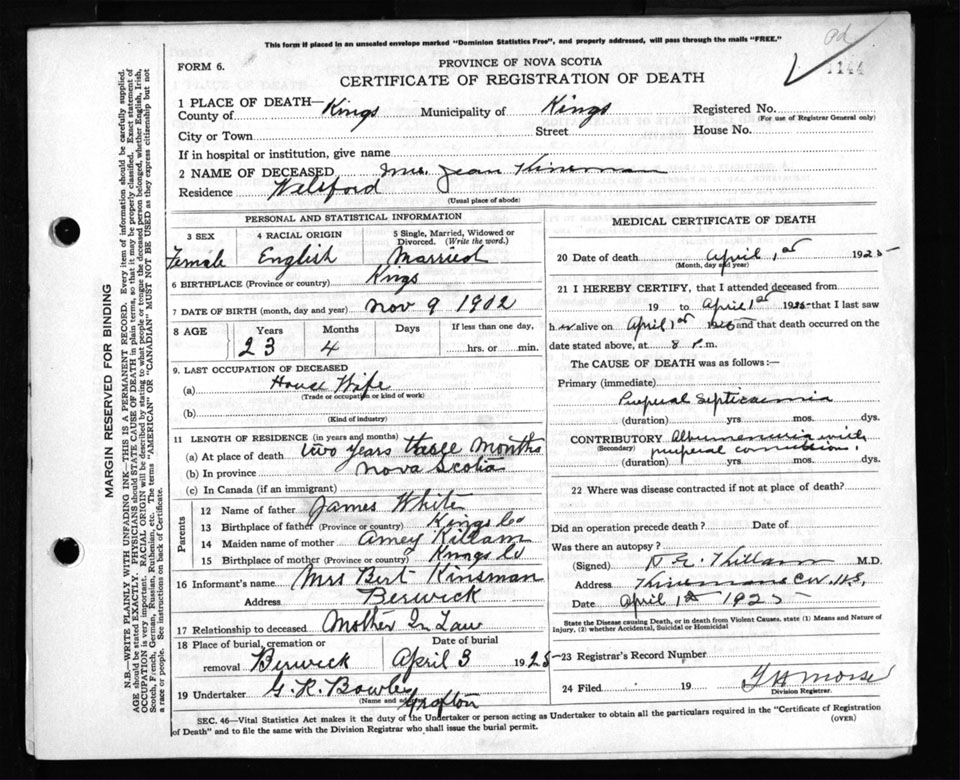 This form if placed in an unsealed envelope marked "Dominion Statistics Free", and properly addressed, will pass through the mails "FREE."
Pd
1144
FORM 6.
PROVINCE OF NOVA SCOTIA
CERTIFICATE OF REGISTRATION OF DEATH
1 PLACE OF DEATH—
County of Kings Municipality of Kings Registered No.
(For use of Registrar General only)
City or Town Street House No.
If in hospital or institution, give name
2 NAME OF DECEASED Mrs. Jean Kinsman
Residence Welsford
(Usual place of abode)
PERSONAL AND STATISTICAL INFORMATION
3 SEX 4 RACIAL ORIGIN 5 Single, Married, Widowed or Divorced. (Write the word.)
Female English Married
6 BIRTHPLACE (Province or country) Kings
7 DATE OF BIRTH (month, day and year) Nov 9 1902
8 AGE Years Months Days If less than one day,
23 4 hrs. or min.
9. LAST OCCUPATION OF DECEASED
(a) House Wife
(Trade or occupation or kind of work)
(b)
(Kind of industry)
11 LENGTH OF RESIDENCE (in years and months)
(a) At place of death two years three months
(b) In province Nova Scotia
(c) In Canada (if an immigrant)
Parents
12 Name of father James White
13 Birthplace of father (Province or country) Kings Co
14 Maiden name of mother Amey Killam
15 Birthplace of mother (Province or country) Kings Co
16 Informant's name Mrs Burt Kinsman
Address Berwick
17 Relationship to deceased Mother In Law
18 Place of burial, cremation or removal Berwick Date of burial April 3 1925
19 Undertaker G. R. Bowlby Grafton
(Name and address)
MEDICAL CERTIFICATE OF DEATH
20 Date of death April 1st 1925
(Month, day and year)
21 I HEREBY CERTIFY, that I attended deceased from
19 to April 1st 1925 that I last saw
h er alive on April 1st 1925 and that death occurred on the
date stated above, at 8 P.m.
The CAUSE OF DEATH was as follows:—
Primary (immediate)
Puerperal Septicaemia
(duration) yrs. mos. dys.
CONTRIBUTORY Albumenuria with
(Secondary) puerperal convulsions.
(duration) yrs. mos. dys.
22 Where was disease contracted if not at place of death?
Did an operation precede death? Date of
Was there an autopsy?
(Signed) Killam M.D.
Address Kinsmans Cor. N.S.
Date April 1st 1925
State the Disease causing Death, or in death from Violent Causes, state (1) Means and Nature of Injury, (2) whether Accidental, Suicidal or Homicidal
23 Registrar's Record Number
24 Filed 19 Morse
Division Registrar.
SEC. 46—Vital Statistics Act makes it the duty of the Undertaker or person acting as Undertaker to obtain all the particulars required in the "Certificate of Registration of Death" and to file the same with the Division Registrar who shall issue the burial permit.
(OVER)
MARGIN RESERVED FOR BINDING
N.B.—WRITE PLAINLY WITH UNFADING INK—THIS IS A PERMANENT RECORD. Every item of information should be carefully supplied.
AGE should be stated EXACTLY. PHYSICIANS should STATE CAUSE OF DEATH in plain terms, so that it may be properly classified. Exact statement of
OCCUPATION is very important. RACIAL ORIGIN will be described by stating to what people or tongue the deceased person belonged, whether English, Irish,
Scotch, French, German, Russian, Ruthenian, etc. The terms "AMERICAN" OR "CANADIAN" MUST NOT BE USED as they express citizenship but not
a race or people. See instructions on back of Certificate.